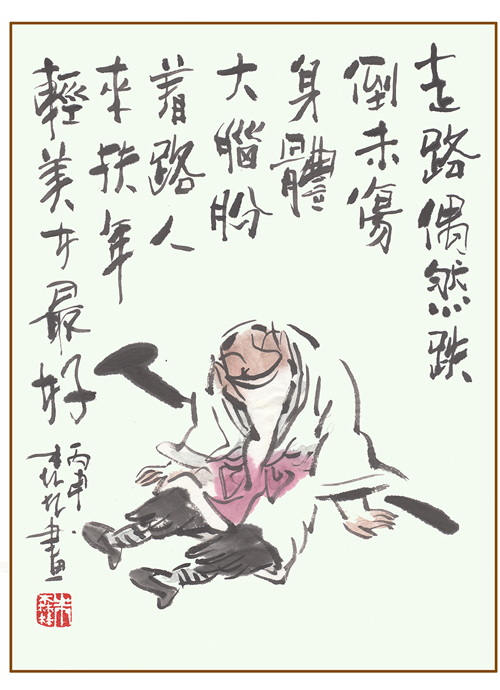 走路偶然跌
倒未傷
身體
大腦盼
着路人
來扶年
輕美女最好
丙申
森林畫